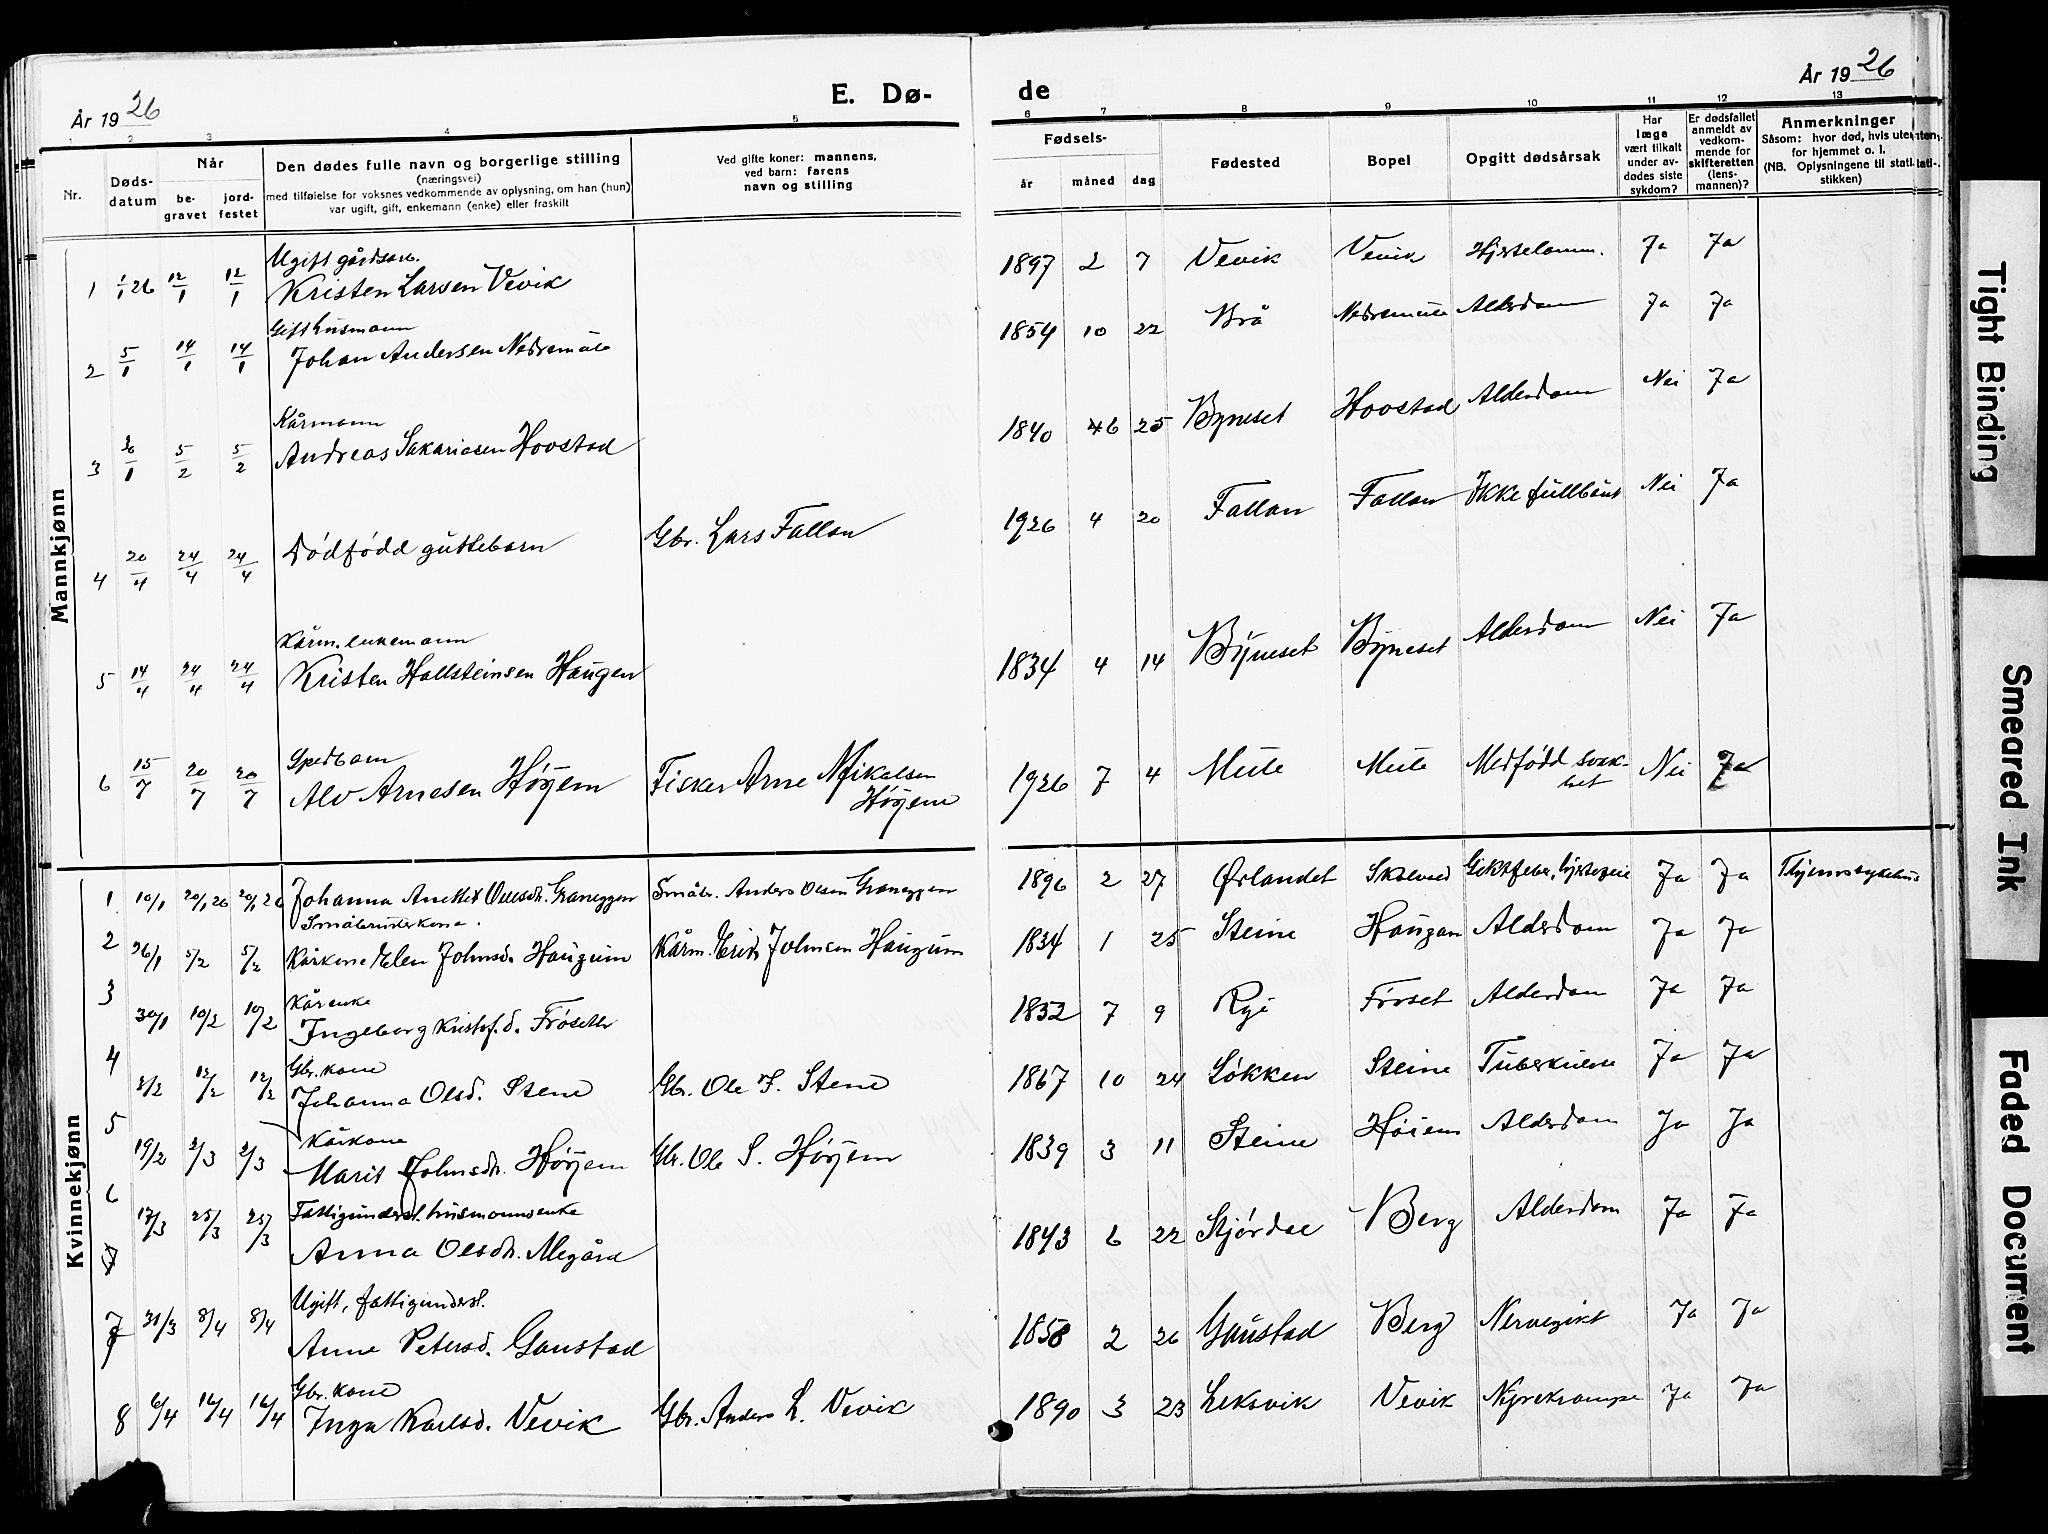 År 1926
E. Dø-
de
År 1926
2 3 4 5 6 7 8 9 10 11 12 13
Nr.
Døds-
datum
Når
be-
gravet
jord-
festet
Den dødes fulle navn og borgerlige stilling
(næringsvei)
med tilføielse for voksnes vedkommende av oplysning, om han (hun)
var ugift, gift, enkemann (enke) eller fraskilt
Ved gifte koner: mannens,
ved barn: farens
navn og stilling
Fødsels-
år måned dag
Fødested
Bopel
Opgitt dødsårsak
Har
læge
vært tilkalt
under av-
dødes siste
sykdom?
Er dødsfallet
anmeldt av
vedkom-
mende for
skifteretten
(lens-
mannen)?
Anmerkninger
Såsom: hvor død, hvis utenfor
for hjemmet o. l.
(NB. Oplysningene til stati-
stikken)
Mannkjønn
Ugift gårdsarb.
1 1/1 26 12/1 12/1 Kristen Larsen Vevik 1897 2 7 Vevik Vevik Hjertelamm. Ja Ja
Gift husmann
2 5/1 14/1 14/1 Johan Andersen Nedremule 1854 10 22 Brå Nedremule Alderdom Ja Ja
Kårmann
3 26/1 5/2 5/2 Andreas Sakariasen Hovstad 1840 6 25 Byneset Hovstad Alderdom Nei Ja
4 20/4 24/4 24/4 Dødfødd guttebarn Gbr. Lars Fallan 1926 4 20 Fallan Fallan Ikke fullbåret Nei Ja
Kårm. enkemann
5 14/4 24/4 24/4 Kristen Hallsteinsen Haugen 1834 4 14 Byneset Byneset Alderdom Nei Ja
Spedbarn
6 15/7 20/7 20/7 Alv Arnesen Høyem Fisker Arne Mikalsen
Høyem 1926 7 4 Mule Mule Medfødd svak-
het Nei Ja
Kvinnekjønn
1 10/1 20/1 26 20/1 26 Johanna Anette Olsesdr. Graneggen Småbr. Anders Olsen Graneggen 1896 2 27 Ørlandet Giktfeber, Ja Ja
Småbrukerkone.
2 26/1 5/2 5/2 Kårkone Elen Johnsd. Haugum Kårm. Erik Johnsen Haugum 1834 1 25 Steine Haugan Alderdom Ja Ja
Kårenke
3 30/1 10/2 10/2 Ingeborg Kristof.d. Frøseth 1832 7 9 Rye Frøset Alderdom Ja Ja
Gbr. kone
4 2/2 12/2 12/2 Johanna Olsd. Stene Gbr. Ole J. Stene 1867 10 24 Løkken Steine Tuberkulose Ja Ja
Kårkone
5 19/2 2/3 2/3 Marit Johnsdr. Høyem Gbr. Ole S. Høyem 1839 3 11 Steine Høiem Alderdom Ja Ja
Fattigunderst. husmannsenke
6 17/3 25/3 25/3 Anna Olsdr. Megård 1843 6 22 Stjørdal Berg Alderdom Ja Ja
Ugift, fattigunderst.
7 31/3 8/4 8/4 Anne Petersd. Gaustad 1858 2 26 Gaustad Berg Nervegikt Ja Ja
Gbr. kone
8 6/4 16/4 16/4 Inga Karlsd. Vevik Gbr. Anders L. Vevik 1890 3 23 Leksvik Vevik Nyrekrampe Ja Ja
Tight Binding
Smeared Ink
Faded Document